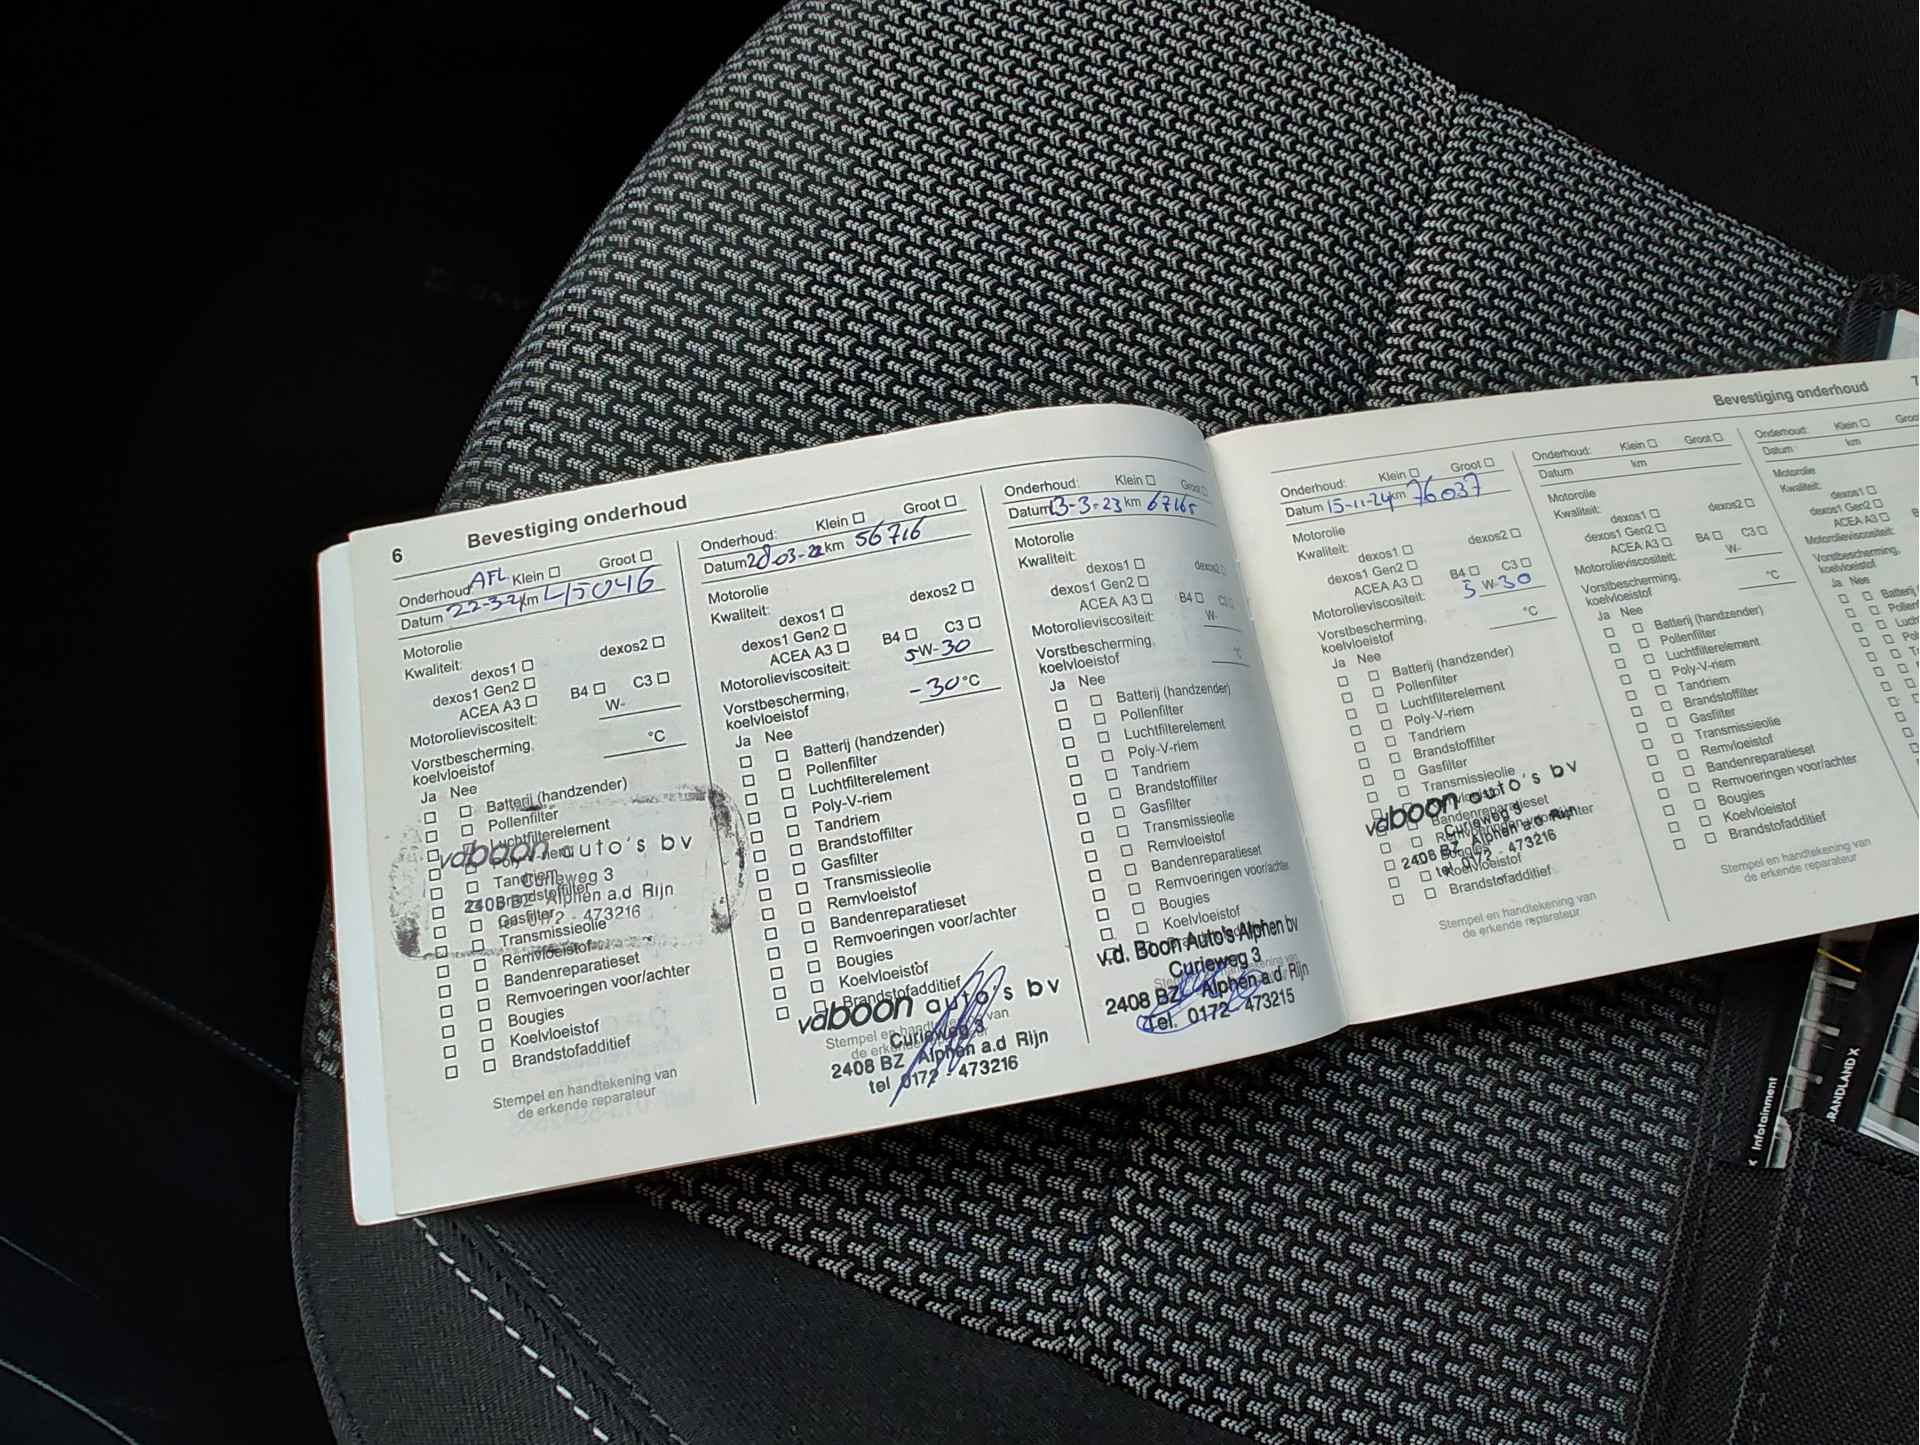 6
Bevestiging onderhoud
Onderhoud: AFL Klein Groot
Datum 22-3-21 km 45046
Motorolie
Kwaliteit:
dexos1 dexos2
dexos1 Gen2
ACEA A3 B4 C3
Motorolieviscositeit: W-
Vorstbescherming,
koelvloeistof °C
Ja Nee
Batterij (handzender)
Pollenfilter
Luchtfilterelement
Poly-V-riem
Tandriem
Brandstoffilter
Gasfilter
Transmissieolie
Remvloeistof
Bandenreparatieset
Remvoeringen voor/achter
Bougies
Koelvloeistof
Brandstofadditief
vdboon auto's bv
Curieweg 3
2408 BZ Alphen a.d Rijn
tel 0172 - 473216
Stempel en handtekening van
de erkende reparateur
Onderhoud: Klein Groot
Datum 28-03-22 km 56716
Motorolie
Kwaliteit:
dexos1 dexos2
dexos1 Gen2
ACEA A3 B4 C3
Motorolieviscositeit: 5W-30
Vorstbescherming,
koelvloeistof -30°C
Ja Nee
Batterij (handzender)
Pollenfilter
Luchtfilterelement
Poly-V-riem
Tandriem
Brandstoffilter
Gasfilter
Transmissieolie
Remvloeistof
Bandenreparatieset
Remvoeringen voor/achter
Bougies
Koelvloeistof
Brandstofadditief
vdboon auto's bv
Curieweg 3
2408 BZ Alphen a.d Rijn
tel 0172 - 473216
Stempel en handtekening van
de erkende
Onderhoud: Klein Groot
Datum 13-3-23 km 67165
Motorolie
Kwaliteit:
dexos1 dexos2
dexos1 Gen2
ACEA A3 B4 C3
Motorolieviscositeit: W-
Vorstbescherming,
koelvloeistof °C
Ja Nee
Batterij (handzender)
Pollenfilter
Luchtfilterelement
Poly-V-riem
Tandriem
Brandstoffilter
Gasfilter
Transmissieolie
Remvloeistof
Bandenreparatieset
Remvoeringen voor/achter
Bougies
Koelvloeistof
v.d. Boon Auto's Alphen bv
Curieweg 3
2408 BZ Alphen a.d Rijn
Tel. 0172 - 473215
Bevestiging onderhoud 7
Onderhoud: Klein Groot
Datum 15-11-24 km 76037
Motorolie
Kwaliteit:
dexos1 dexos2
dexos1 Gen2
ACEA A3 B4 C3
Motorolieviscositeit: 5W-30
Vorstbescherming,
koelvloeistof °C
Ja Nee
Batterij (handzender)
Pollenfilter
Luchtfilterelement
Poly-V-riem
Tandriem
Brandstoffilter
Gasfilter
Transmissieolie
Remvloeistof
Bandenreparatieset
Remvoeringen voor/achter
Bougies
Koelvloeistof
Brandstofadditief
vdboon auto's bv
Curieweg 3
2408 BZ Alphen a.d Rijn
tel 0172 - 473216
Stempel en handtekening van
de erkende reparateur
Onderhoud: Klein Groot
Datum km
Motorolie
Kwaliteit:
dexos1 dexos2
dexos1 Gen2
ACEA A3 B4 C3
Motorolieviscositeit: W-
Vorstbescherming,
koelvloeistof °C
Ja Nee
Batterij (handzender)
Pollenfilter
Luchtfilterelement
Poly-V-riem
Tandriem
Brandstoffilter
Gasfilter
Transmissieolie
Remvloeistof
Bandenreparatieset
Remvoeringen voor/achter
Bougies
Koelvloeistof
Brandstofadditief
Stempel en handtekening van
de erkende reparateur
Onderhoud: Klein
Datum km
Motorolie
Kwaliteit:
dexos1
dexos1 Gen2
ACEA A3
Motorolieviscositeit:
Vorstbescherming,
koelvloeistof
Ja Nee
X Infotainment